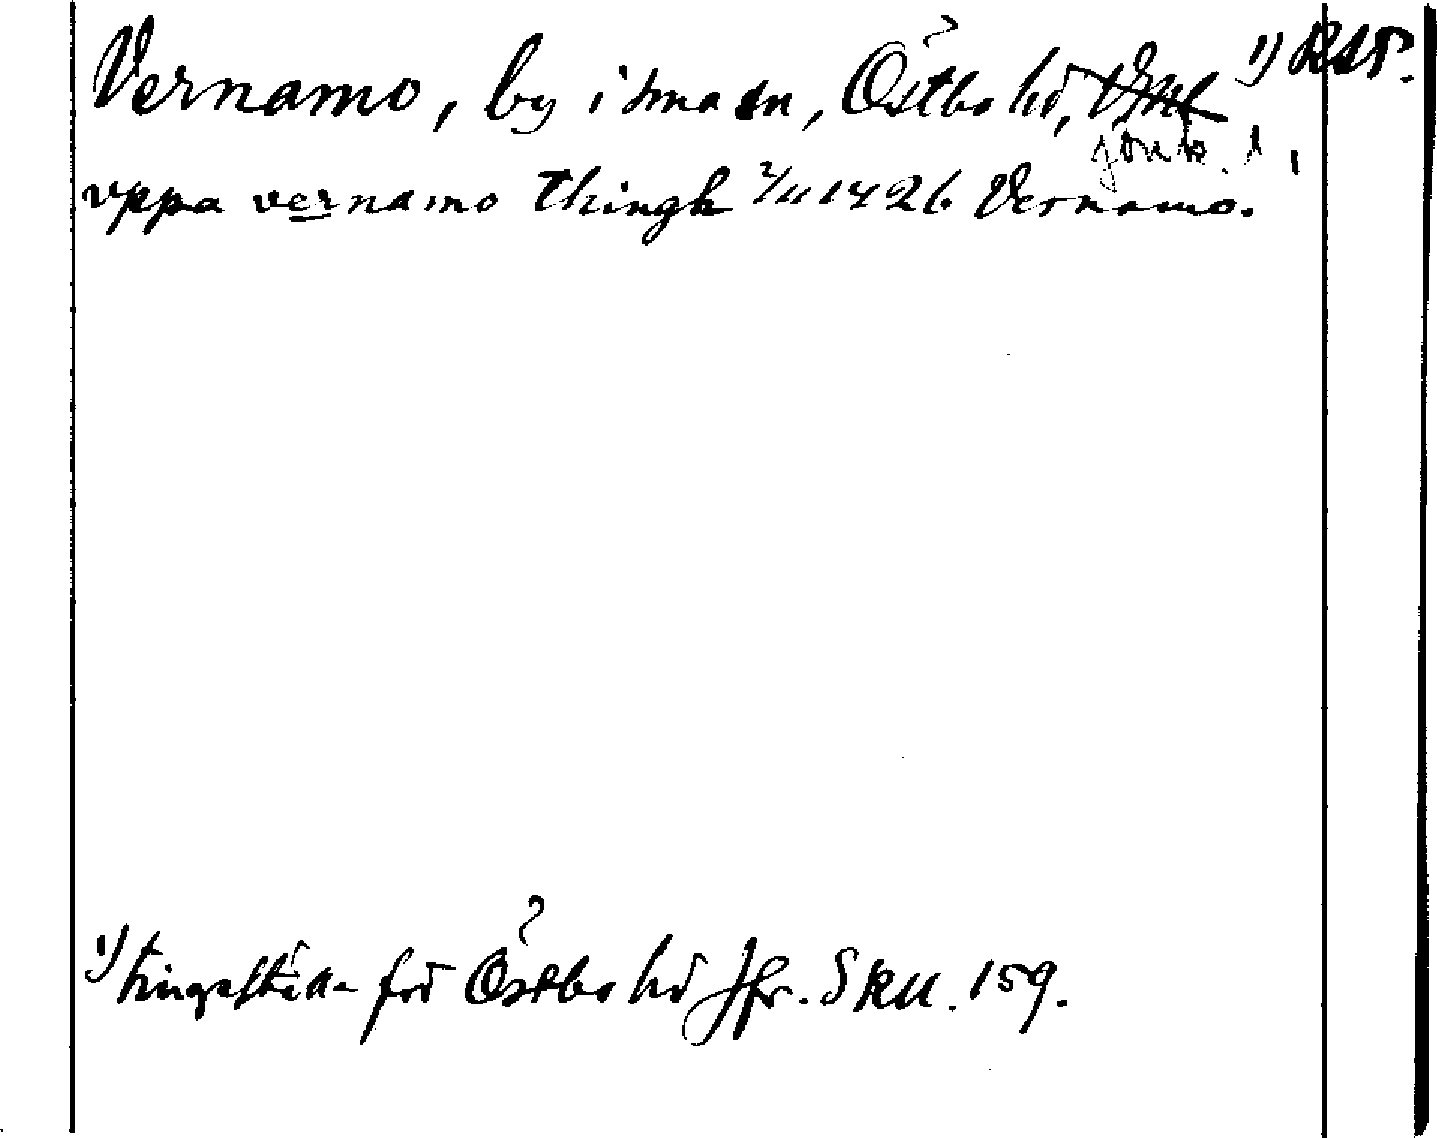 Vernamo, by i sma sn, Östbo hd, 1)
Jönk. l.
vppa vernamo thingh 2/11 1426 Vernamo.
1) tingställe för Östbo hd Jfr. SRU. 159.